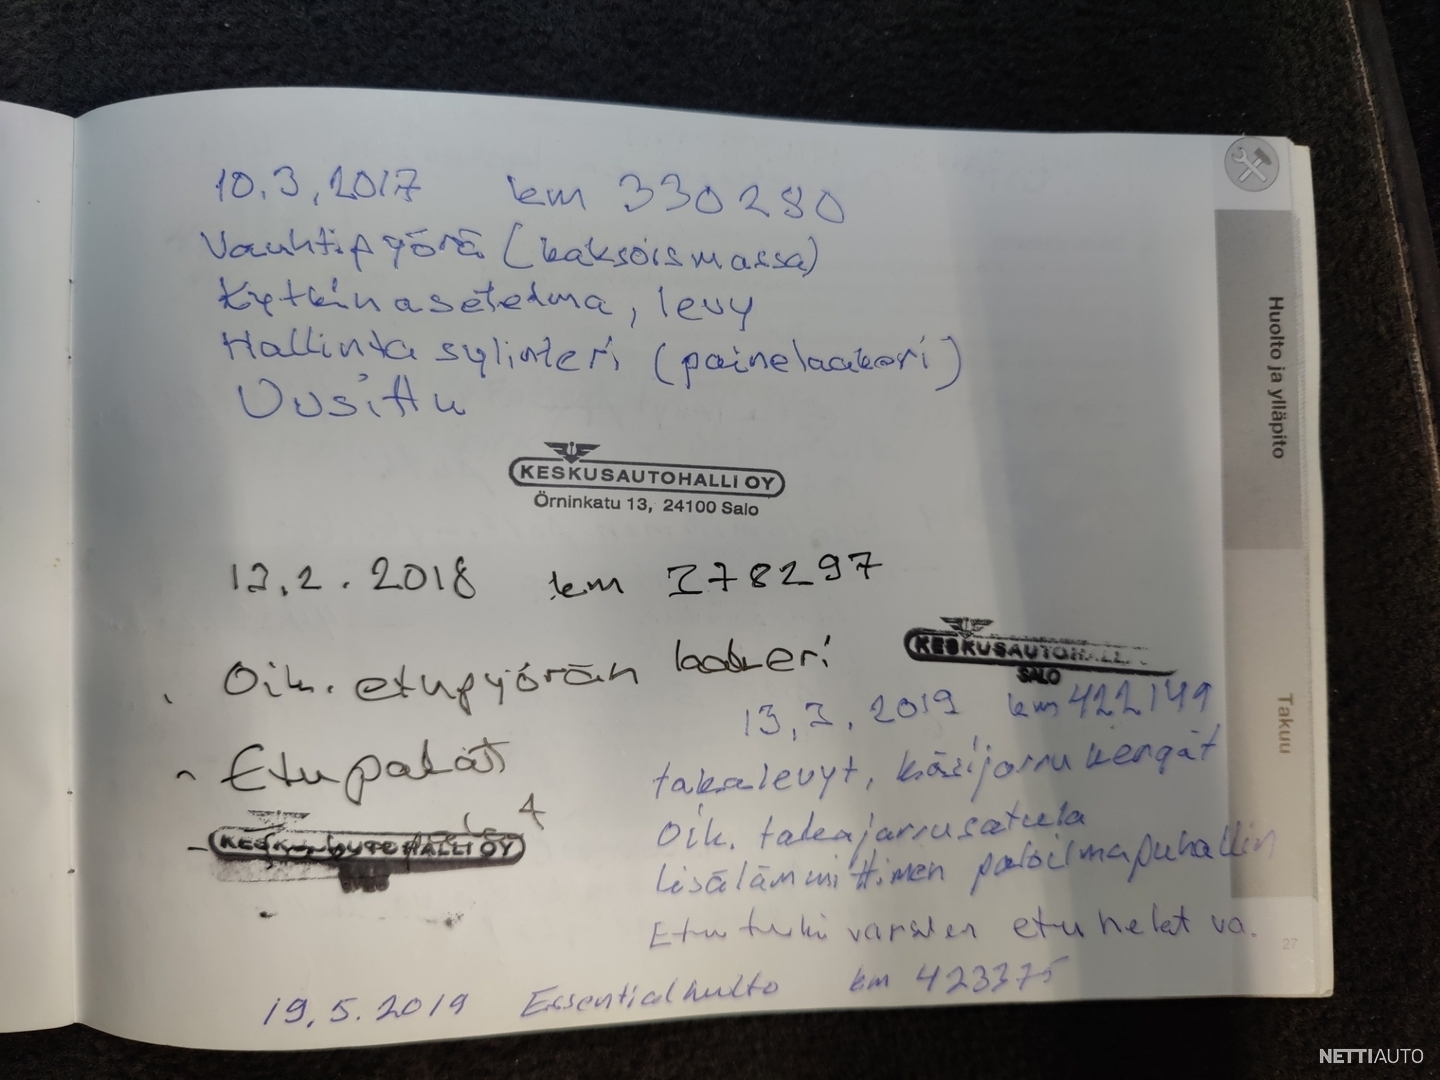 10.3.2017 km 330280
Vauhtipyörä (kaksoismassa)
Kytkinasetelma, levy
Hallinta sylinteri (painelaakeri)
Uusittu
KESKUSAUTOHALLI OY
Örninkatu 13, 24100 Salo
12.2.2018 km 378297
Oik. etupyörän laakeri
Etupalat
KESKUSAUTOHALLI OY
KESKUSAUTOHALLI
SALO
13.3.2019 km 422149
takalevyt, käsijarru kengät
Oik. takajarrusatula
Lisälämmittimen paloilmapuhallin
Etu tuki varsien etu helat va.
19.5.2019 Essentialhuolto km 423375
Huolto ja ylläpito
Takuu
27
NETTIAUTO